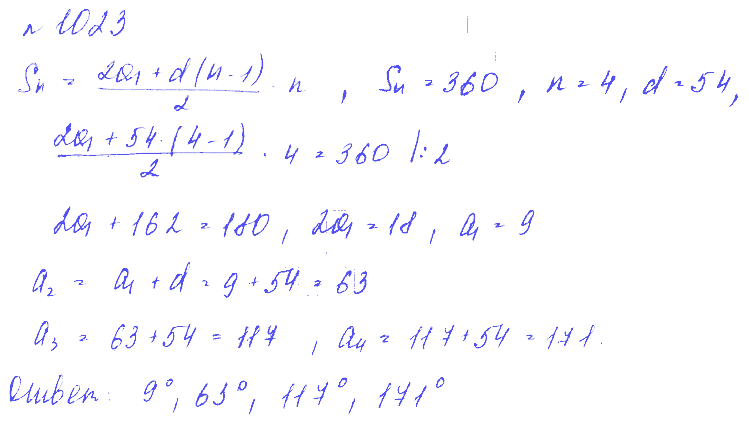 № 1023
Sn = (2a₁ + d(n-1))/2 · n, Sn = 360, n = 4, d = 54,
(2a₁ + 54·(4-1))/2 · 4 = 360 |:2
2a₁ + 162 = 180, 2a₁ = 18, a₁ = 9
a₂ = a₁ + d = 9 + 54 = 63
a₃ = 63 + 54 = 117, a₄ = 117 + 54 = 171.
Ответ: 9°, 63°, 117°, 171°